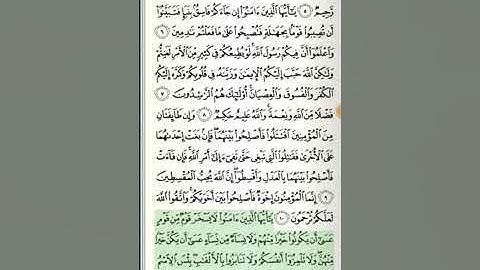 رَّحِيمٌ ٥ يَـٰٓأَيُّهَا ٱلَّذِينَ ءَامَنُوٓا۟ إِن جَآءَكُمْ فَاسِقٌۢ بِنَبَإٍ فَتَبَيَّنُوٓا۟
أَن تُصِيبُوا۟ قَوْمًۢا بِجَهَـٰلَةٍ فَتُصْبِحُوا۟ عَلَىٰ مَا فَعَلْتُمْ نَـٰدِمِينَ ٦
وَٱعْلَمُوٓا۟ أَنَّ فِيكُمْ رَسُولَ ٱللَّهِ لَوْ يُطِيعُكُمْ فِى كَثِيرٍ مِّنَ ٱلْأَمْرِ لَعَنِتُّمْ
وَلَـٰكِنَّ ٱللَّهَ حَبَّبَ إِلَيْكُمُ ٱلْإِيمَـٰنَ وَزَيَّنَهُۥ فِى قُلُوبِكُمْ وَكَرَّهَ إِلَيْكُمُ
ٱلْكُفْرَ وَٱلْفُسُوقَ وَٱلْعِصْيَانَ أُو۟لَـٰٓئِكَ هُمُ ٱلرَّٰشِدُونَ ٧
فَضْلًا مِّنَ ٱللَّهِ وَنِعْمَةً وَٱللَّهُ عَلِيمٌ حَكِيمٌ ٨ وَإِن طَآئِفَتَانِ
مِنَ ٱلْمُؤْمِنِينَ ٱقْتَتَلُوا۟ فَأَصْلِحُوا۟ بَيْنَهُمَا فَإِنۢ بَغَتْ إِحْدَىٰهُمَا
عَلَى ٱلْأُخْرَىٰ فَقَـٰتِلُوا۟ ٱلَّتِى تَبْغِى حَتَّىٰ تَفِىٓءَ إِلَىٰٓ أَمْرِ ٱللَّهِ فَإِن فَآءَتْ
فَأَصْلِحُوا۟ بَيْنَهُمَا بِٱلْعَدْلِ وَأَقْسِطُوٓا۟ إِنَّ ٱللَّهَ يُحِبُّ ٱلْمُقْسِطِينَ
٩ إِنَّمَا ٱلْمُؤْمِنُونَ إِخْوَةٌ فَأَصْلِحُوا۟ بَيْنَ أَخَوَيْكُمْ وَٱتَّقُوا۟ ٱللَّهَ
لَعَلَّكُمْ تُرْحَمُونَ ١٠ يَـٰٓأَيُّهَا ٱلَّذِينَ ءَامَنُوا۟ لَا يَسْخَرْ قَوْمٌ مِّن قَوْمٍ
عَسَىٰٓ أَن يَكُونُوا۟ خَيْرًا مِّنْهُمْ وَلَا نِسَآءٌ مِّن نِّسَآءٍ عَسَىٰٓ أَن يَكُنَّ خَيْرًا
مِّنْهُنَّ وَلَا تَلْمِزُوٓا۟ أَنفُسَكُمْ وَلَا تَنَابَزُوا۟ بِٱلْأَلْقَـٰبِ بِئْسَ ٱلِٱسْمُ